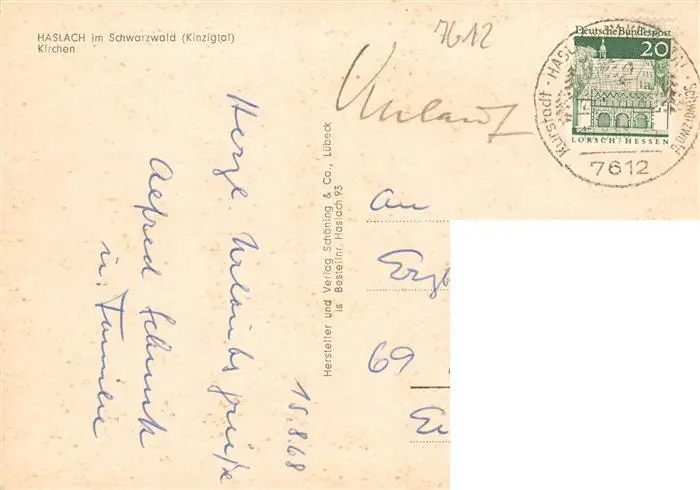 HASLACH im Schwarzwald (Kinzigtal)
Kirchen
7612
Urlaub
Deutsche Bundespost
20
LORSCH/HESSEN
Kurstadt · HASL
7612
Herzl. Urlaubsgrüße
Alfred Schmik
u. Familie
15.8.68
Hersteller und Verlag Schöning & Co., Lübeck
is Bestellnr. Haslach 93
An
69